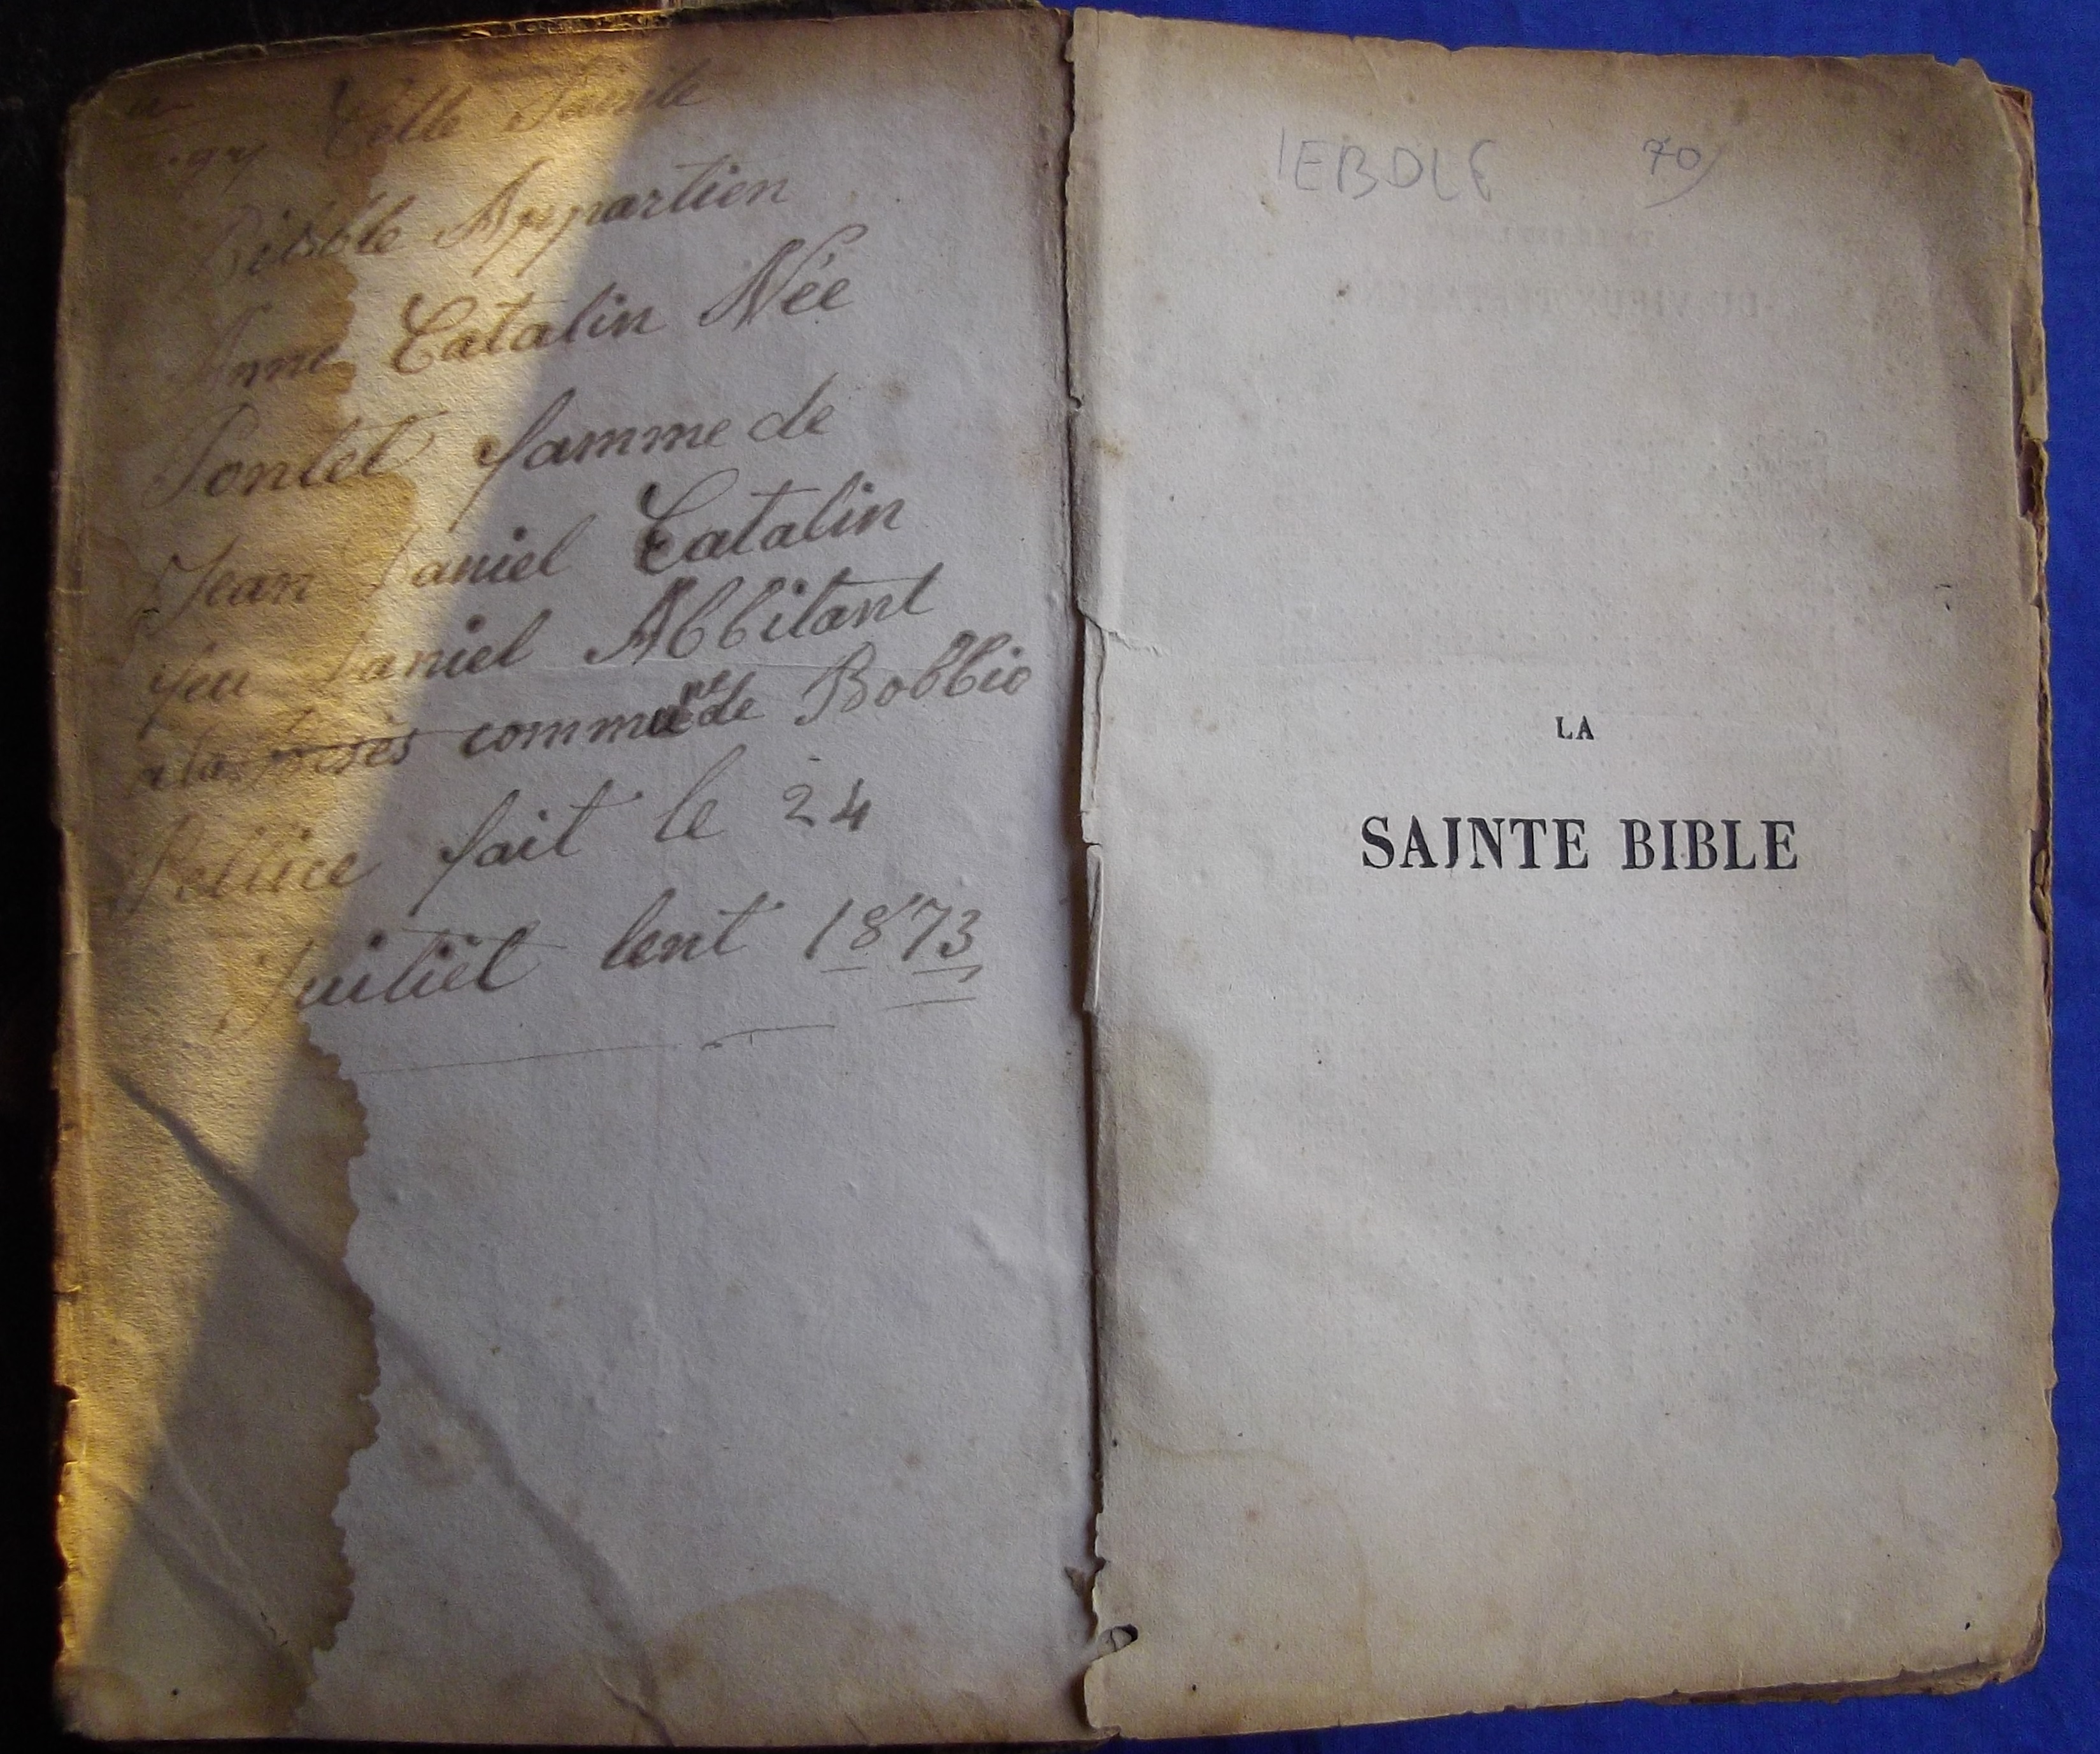 Celle Sainte
Bibble Appartien
Anne Catalin Née
Pontet famme de
Jean Daniel Catalin
feu Daniel Abbitant
a la commune de Bobbio
Pellice fait le 24
Juiliet lent 1873
IEBDLF 70
LA
SAINTE BIBLE